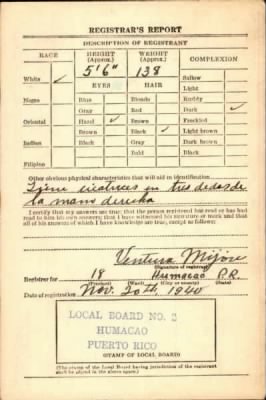 REGISTRAR'S REPORT
DESCRIPTION OF REGISTRANT
RACE HEIGHT (Approx.) WEIGHT (Approx.) COMPLEXION
5' 6" 138
White ✓ Sallow
EYES HAIR Light
Negro Blue Blonde Ruddy
Gray Red Dark ✓
Oriental Hazel ✓ Brown Freckled
Brown Black ✓ Light brown
Indian Black Gray Dark brown
Bald Black
Filipino
Other obvious physical characteristics that will aid in identification
Tiene cicatrices en tres dedos de
la mano derecha
I certify that my answers are true; that the person registered has read or has had
read to him his own answers; that I have witnessed his signature or mark and that
all of his answers of which I have knowledge are true, except as follows:
Ventura
(Signature of registrar)
Registrar for 18 Humacao P.R.
(Precinct) (Ward) (City or county) (State)
Date of registration Nov. 20th, 1940
LOCAL BOARD NO. 2
HUMACAO
PUERTO RICO
(STAMP OF LOCAL BOARD)
(The stamp of the Local Board having jurisdiction of the registrant
shall be placed in the above space.)